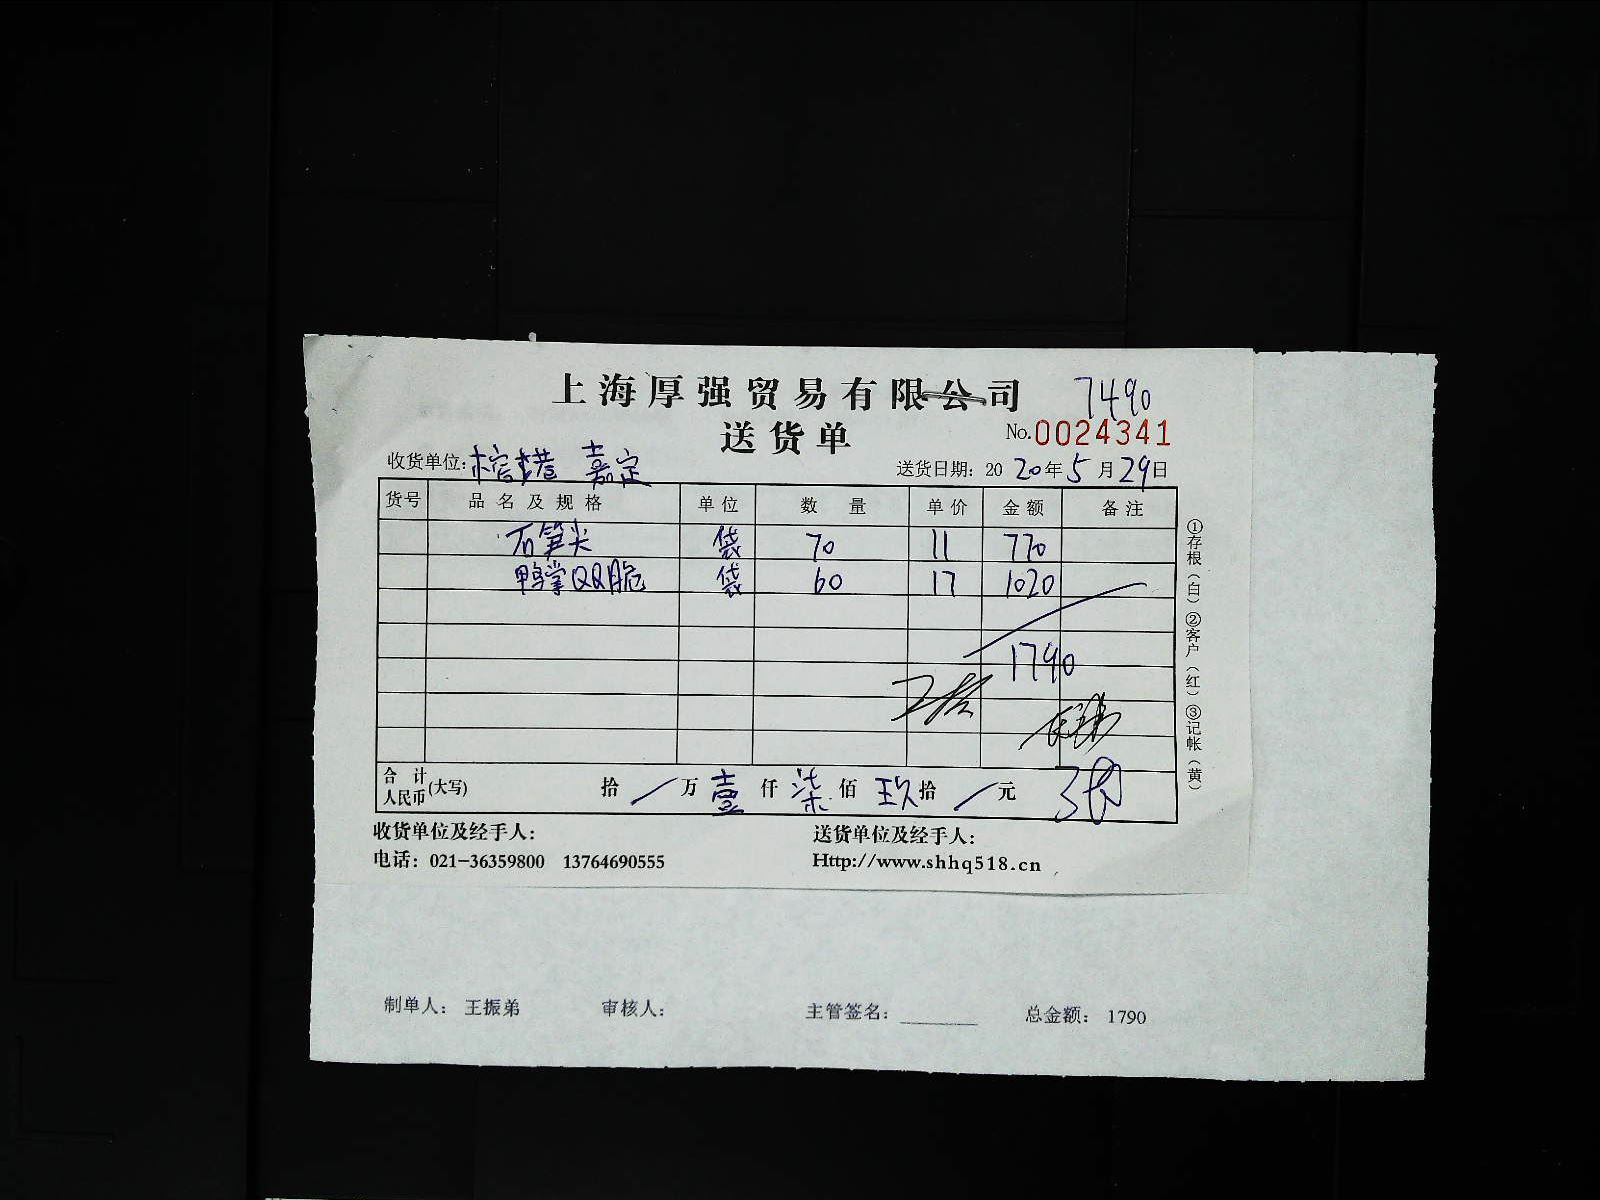 上海厚强贸易有限公司 7490
送货单 No.0024341
收货单位: 嘉定 送货日期: 2020年5月29日
货号 品名及规格 单位 数量 单价 金额 备注
石笋尖 袋 70 11 770
鸭掌QQ脆 袋 60 17 1020
1790
合计人民币(大写) 拾 / 万 壹 仟 柒 佰 玖 拾 / 元
①存根(白) ②客户(红) ③记帐(黄)
收货单位及经手人: 送货单位及经手人:
电话: 021-36359800 13764690555 Http://www.shhq518.cn
制单人: 王振弟 审核人: 主管签名: ________ 总金额: 1790